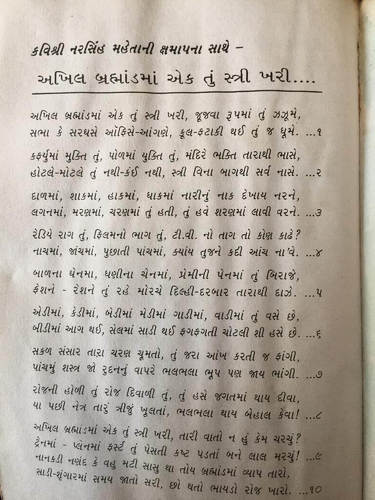 કવિશ્રી નરસિંહ મહેતાની ક્ષમાપના સાથે –
અખિલ બ્રહ્માંડમાં એક તું સ્ત્રી ખરી....
અખિલ બ્રહ્માંડમાં એક તું સ્ત્રી ખરી, જૂજવા રૂપમાં તું ઝઝૂમે,
સભા કે સરઘસે ઑફિસે-આંગણે, ફૂલ-ફટાકી થઈ તું જ ઘૂમે. ...૧
કર્ફ્યુમાં મુક્તિ તું, પોળમાં યુક્તિ તું, મંદિરે ભક્તિ તારાથી ભાસે,
હોટલે-મોટલે તું નથી-કંઈ નથી, સ્ત્રી વિના બાગથી સર્વ નાસે. ...૨
દાળમાં, શાકમાં, હાકમાં, ધાકમાં નારીનું નાક દેખાય નરને,
લગનમાં, મરણમાં, ચરણમાં તું હતી, તું હવે શરણમાં લાવી વરને. ...૩
રેડિયે રાગ તું, ફિલમનો ભાગ તું, ટી.વી. નો તાગ તો કોણ કાઢે?
નાચમાં, જાંચમાં, પુછાતી પાંચમાં, ક્યાંય તુજને કદી આંચ ના'વે. ...૪
બાળના ઘેનમાં, ધણીના ચેનમાં, પ્રેમીની પેનમાં તું બિરાજે,
ફેશને - રેશને તું રહે મોરચે દિલ્હી-દરબાર તારાથી દાઝે. ...૫
એડીમાં, કેડીમાં, બેડીમાં મેડીમાં ગાડીમાં, વાડીમાં તું વસે છે,
બીડીમાં આગ થઈ, સેંલમાં સાડી થઈ ફગફગતી ચોટલી શી હસે છે. ...૬
સકળ સંસાર તારા ચરણ ચૂમતો, તું જરા આંખ કરતી જ ફાંગી,
પાંચમું શસ્ત્ર જો રુદનનું વાપરે ભલભલા ભૂપ પણ જાય ભાંગી. ...૭
રોજની હોળી તું રોજ દિવાળી તું, તું હસે જગતમાં થાય દીવા,
યા પછી નેત્ર તારું ત્રીજું ખૂલતાં, ભલભલા થાય બેહાલ કેવા! ...૮
અખિલ બ્રહ્માંડમાં એક તું સ્ત્રી ખરી, તારી વાતો ન હું કેમ ચરચું?
ટ્રેનમાં - પ્લેનમાં ફર્સ્ટ તું પેસતી કષ્ટ પડતાં બને લાલ મરચું! ...૯
નાનકડી નણંદ કે વહુ મટી સાસુ થા તોય બ્રહ્માંડમાં વ્યાપ તારો,
સાડી-શૃંગારમાં સમય જાતો સરી, છો થતો ભાયડો રોજ ખારો. ...૧૦